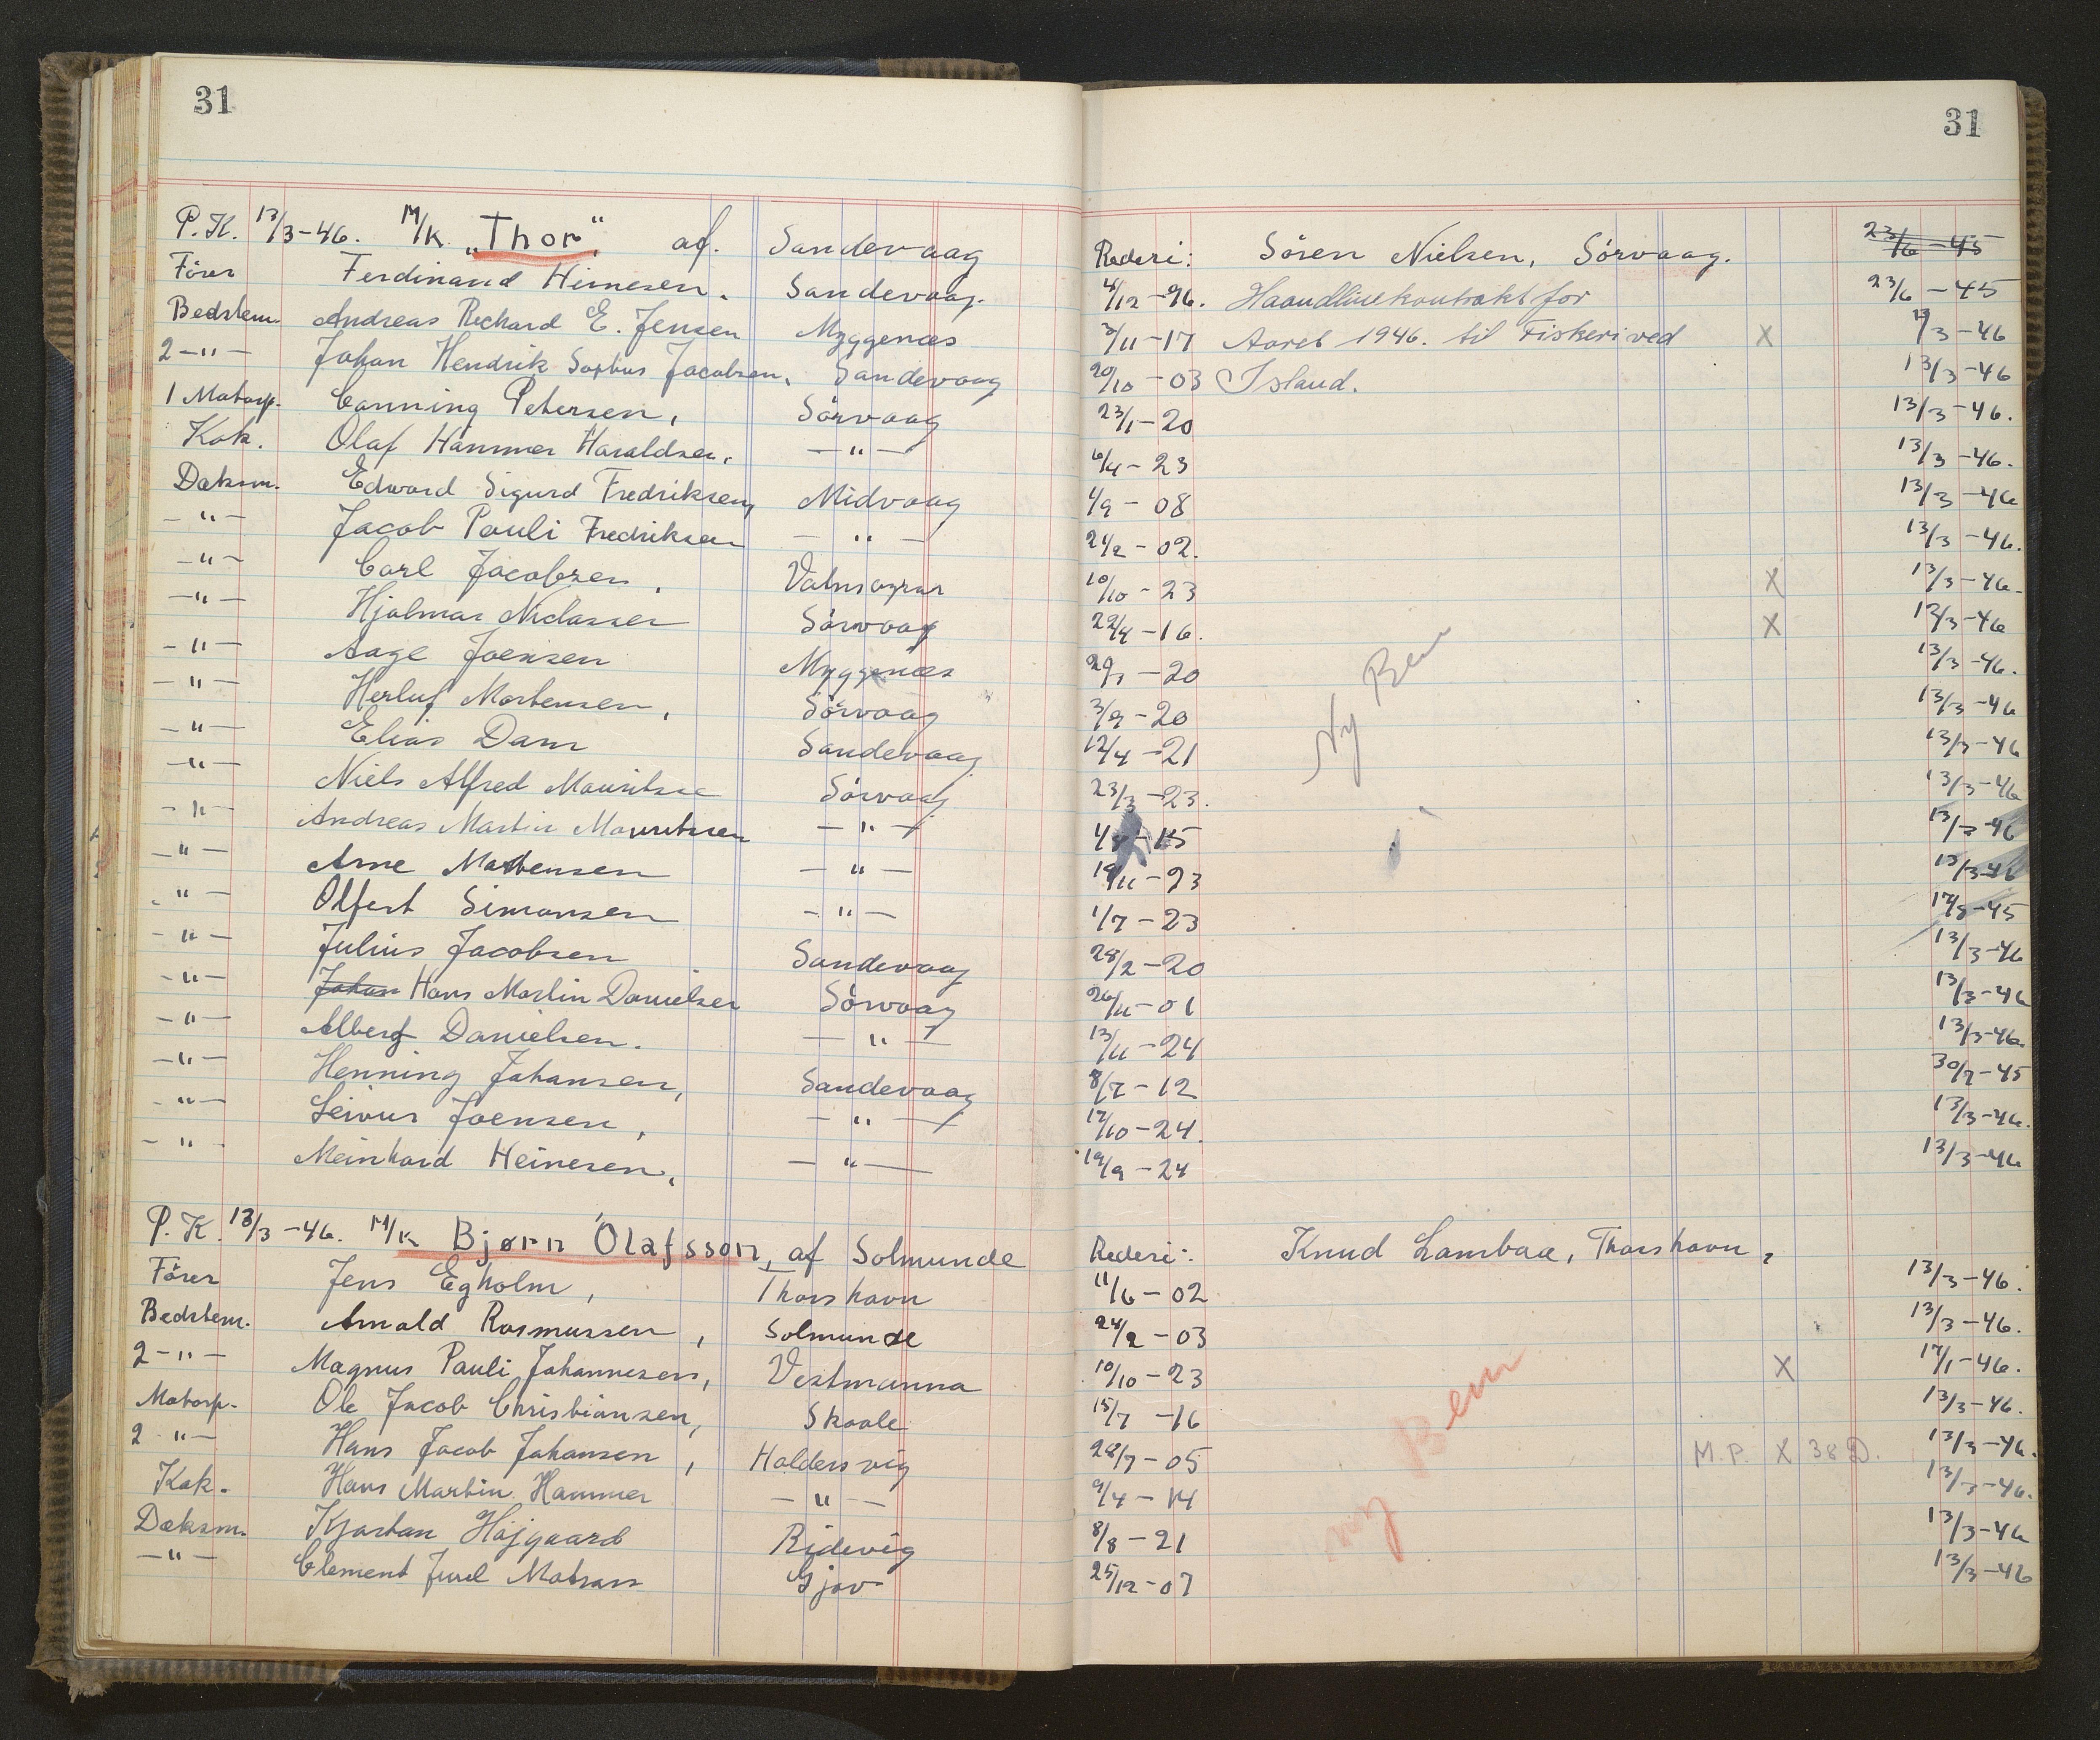 31
31
P.K. 13/3-46. M/K. „Thor“ af. Sandevaag Rederi: Sören Nielsen, Sörvaag. 23/6-45
Förer Ferdinand Heinesen. Sandevaag. 4/12-96. Haandlinekontrakt for 23/6-45
Bedstem. Andreas Richard E. Jensen Myggenæs 3/11-17 Aaret 1946. til Fiskeri ved X 13/3-46
2-"- Johan Hendrik Sophus Jacobsen. Sandevaag 20/10-03 Island. 13/3-46
1 Motorp. Canning Petersen, Sörvaag 23/1-20 13/3-46.
Kok. Olaf Hammer Haraldsen. -"- 6/4-23 13/3-46.
Dæksm. Edward Sigurd Fredriksen, Midvaag 1/9-08 13/3-46
-"- Jacob Pauli Fredriksen -"- 21/2-02. 13/3-46.
-"- Carl Jacobsen, Vatnsoyrar 10/10-23 X 13/3-46.
-"- Hjalmar Niclassen Sörvaag 22/4-16. X 13/3-46
-"- Aage Joensen Myggenæs 29/1-20 13/3-46.
-"- Herluf Mortensen, Sörvaag 3/9-20 Ny Bem 13/3-46
-"- Elias Dam Sandevaag 12/4-21 13/3-46
-"- Niels Alfred Mouritsen Sörvaag 23/3-23. 13/3-46
-"- Andreas Martin Mouritsen -"- 15 13/3-46
-"- Arne Mortensen -"- 19/11-23 13/3-46
-"- Olfert Simonsen -"- 1/7-23 17/8-45
-"- Julius Jacobsen Sandevaag 28/2-20 13/3-46
-"- Johan Hans Martin Danielsen Sörvaag 26/11-01 13/3-46
-"- Albert Danielsen. -"- 13/11-24 13/3-46.
-"- Henning Johansen, Sandevaag 8/7-12 30/7-45
-"- Leivur Joensen, -"- 17/10-24. 13/3-46.
-"- Meinhard Heinesen, -"- 19/9-24 13/3-46
P.K. 13/3-46. M/K Bjørn Ólafsson, af Solmunde Rederi: Knud Lambaa, Thorshavn,
Förer Jens Egholm, Thorshavn 11/6-02 13/3-46.
Bedstem. Arnold Rasmussen, Solmunde 24/2-03 13/3-46.
2-"- Magnus Pauli Johannesen, Vestmanna 10/10-23 X 17/1-46.
Motorp. Ole Jacob Christiansen, Skaale 15/7-16 13/3-46.
2-"- Hans Jacob Johansen, Haldersvig 28/7-05 M.P. X 38 D. 13/3-46.
Kok. Hans Martin Hammer -"- 9/4-14 ny Bem 13/3-46.
Dæksm. Kjartan Höjgaard Ridevig 8/8-21 13/3-46
-"- Clement Juul Matras Gjov 25/12-07 13/3-46